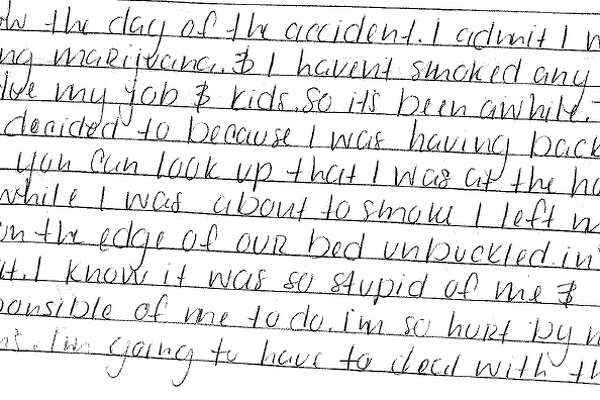 the day of the accident. I admit I
marijuana. & I havent smoked any
my job & kids. so its been awhile.
decided to because I was having back
you can look up that I was at the
while I was about to smoke I left
the edge of OUR bed unbuckled. in
I know it was so stupid of me &
of me to do. im so hurt by
Im going to have to deal with